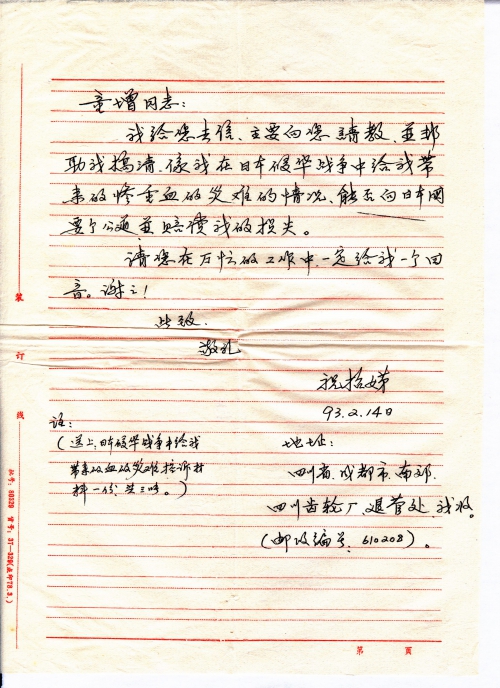 童增同志:
我给您去信、主要向您请教、並帮
助我搞清、像我在日本侵华战争中给我带
来的惨重血的灾难的情况、能否向日本国
要个公道並赔偿我的损失。
请您在万忙的工作中一定给我一个回
音。谢々!
此致.
敬礼
祝招娣
93.2.14日
注:
(送上、日本侵华战争中给我
带来的血的灾难控诉材
料一份、共三呀。)
地址:
四川省、成都市、南郊、
四川齿轮厂、退管处、我收。
(邮政编号:610208)。
装
订
线
拟号:80329 货号:37—329(成印78.3.)
第 页